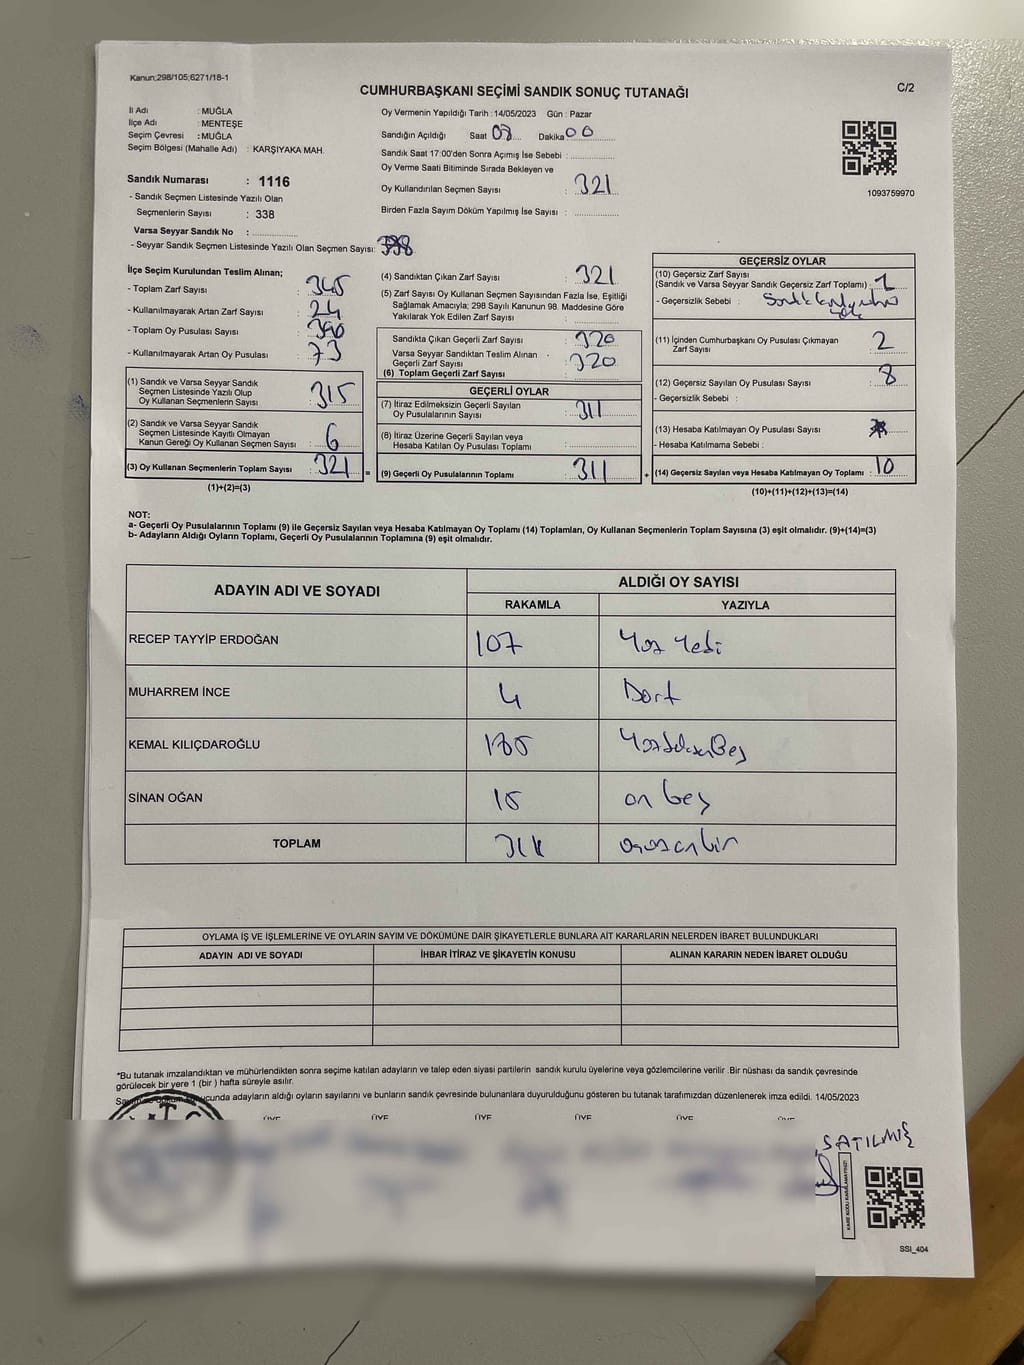 Kanun;298/105;6271/18-1
CUMHURBAŞKANI SEÇİMİ SANDIK SONUÇ TUTANAĞI
C/2
İl Adı : MUĞLA
İlçe Adı : MENTEŞE
Seçim Çevresi : MUĞLA
Seçim Bölgesi (Mahalle Adı) : KARŞIYAKA MAH.
Sandık Numarası : 1116
- Sandık Seçmen Listesinde Yazılı Olan
Seçmenlerin Sayısı : 338
Varsa Seyyar Sandık No : ..............
- Seyyar Sandık Seçmen Listesinde Yazılı Olan Seçmen Sayısı:
Oy Vermenin Yapıldığı Tarih : 14/05/2023 Gün : Pazar
Sandığın Açıldığı Saat 08 Dakika 00
Sandık Saat 17:00'den Sonra Açımış İse Sebebi : ..............
Oy Verme Saati Bitiminde Sırada Bekleyen ve
Oy Kullandırılan Seçmen Sayısı : 321
Birden Fazla Sayım Döküm Yapılmış İse Sayısı : ..............
1093759970
İlçe Seçim Kurulundan Teslim Alınan;
- Toplam Zarf Sayısı : 345
- Kullanılmayarak Artan Zarf Sayısı : 24
- Toplam Oy Pusulası Sayısı :
- Kullanılmayarak Artan Oy Pusulası : 73
(1) Sandık ve Varsa Seyyar Sandık
Seçmen Listesinde Yazılı Olup
Oy Kullanan Seçmenlerin Sayısı : 315
(2) Sandık ve Varsa Seyyar Sandık
Seçmen Listesinde Kayıtlı Olmayan
Kanun Gereği Oy Kullanan Seçmen Sayısı : 6
(3) Oy Kullanan Seçmenlerin Toplam Sayısı : 321 =
(1)+(2)=(3)
(4) Sandıktan Çıkan Zarf Sayısı : 321
(5) Zarf Sayısı Oy Kullanan Seçmen Sayısından Fazla İse, Eşitliği
Sağlamak Amacıyla; 298 Sayılı Kanunun 98. Maddesine Göre
Yakılarak Yok Edilen Zarf Sayısı : ..............
Sandıkta Çıkan Geçerli Zarf Sayısı : 320
Varsa Seyyar Sandıktan Teslim Alınan
Geçerli Zarf Sayısı : 320
(6) Toplam Geçerli Zarf Sayısı : ..............
GEÇERLİ OYLAR
(7) İtiraz Edilmeksizin Geçerli Sayılan
Oy Pusulalarının Sayısı : 311
(8) İtiraz Üzerine Geçerli Sayılan veya
Hesaba Katılan Oy Pusulası Toplamı : ..............
(9) Geçerli Oy Pusulalarının Toplamı : 311 +
GEÇERSİZ OYLAR
(10) Geçersiz Zarf Sayısı
(Sandık ve Varsa Seyyar Sandık Geçersiz Zarf Toplamı) :
- Geçersizlik Sebebi :
(11) İçinden Cumhurbaşkanı Oy Pusulası Çıkmayan
Zarf Sayısı : 2
(12) Geçersiz Sayılan Oy Pusulası Sayısı : 8
- Geçersizlik Sebebi :
(13) Hesaba Katılmayan Oy Pusulası Sayısı :
- Hesaba Katılmama Sebebi :
(14) Geçersiz Sayılan veya Hesaba Katılmayan Oy Toplamı : 10
(10)+(11)+(12)+(13)=(14)
NOT:
a- Geçerli Oy Pusulalarının Toplamı (9) ile Geçersiz Sayılan veya Hesaba Katılmayan Oy Toplamı (14) Toplamları, Oy Kullanan Seçmenlerin Toplam Sayısına (3) eşit olmalıdır. (9)+(14)=(3)
b- Adayların Aldığı Oyların Toplamı, Geçerli Oy Pusulalarının Toplamına (9) eşit olmalıdır.
ADAYIN ADI VE SOYADI
ALDIĞI OY SAYISI
RAKAMLA YAZIYLA
RECEP TAYYİP ERDOĞAN 107 Yüz Yedi
MUHARREM İNCE 4 Dört
KEMAL KILIÇDAROĞLU 185 YüzSeksenBeş
SİNAN OĞAN 15 on beş
TOPLAM 311 üçyüzonbir
OYLAMA İŞ VE İŞLEMLERİNE VE OYLARIN SAYIM VE DÖKÜMÜNE DAİR ŞİKAYETLERLE BUNLARA AİT KARARLARIN NELERDEN İBARET BULUNDUKLARI
ADAYIN ADI VE SOYADI İHBAR İTİRAZ VE ŞİKAYETİN KONUSU ALINAN KARARIN NEDEN İBARET OLDUĞU
*Bu tutanak imzalandıktan ve mühürlendikten sonra seçime katılan adayların ve talep eden siyasi partilerin sandık kurulu üyelerine veya gözlemcilerine verilir .Bir nüshası da sandık çevresinde
görülecek bir yere 1 (bir ) hafta süreyle asılır.
ucunda adayların aldığı oyların sayılarını ve bunların sandık çevresinde bulunanlara duyurulduğunu gösteren bu tutanak tarafımızdan düzenlenerek imza edildi. 14/05/2023
ÜYE ÜYE ÜYE ÜYE ÜYE ÜYE
SATILMIŞ
SSI_404